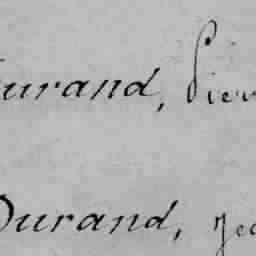 Durand, Pier
Durand, Jea